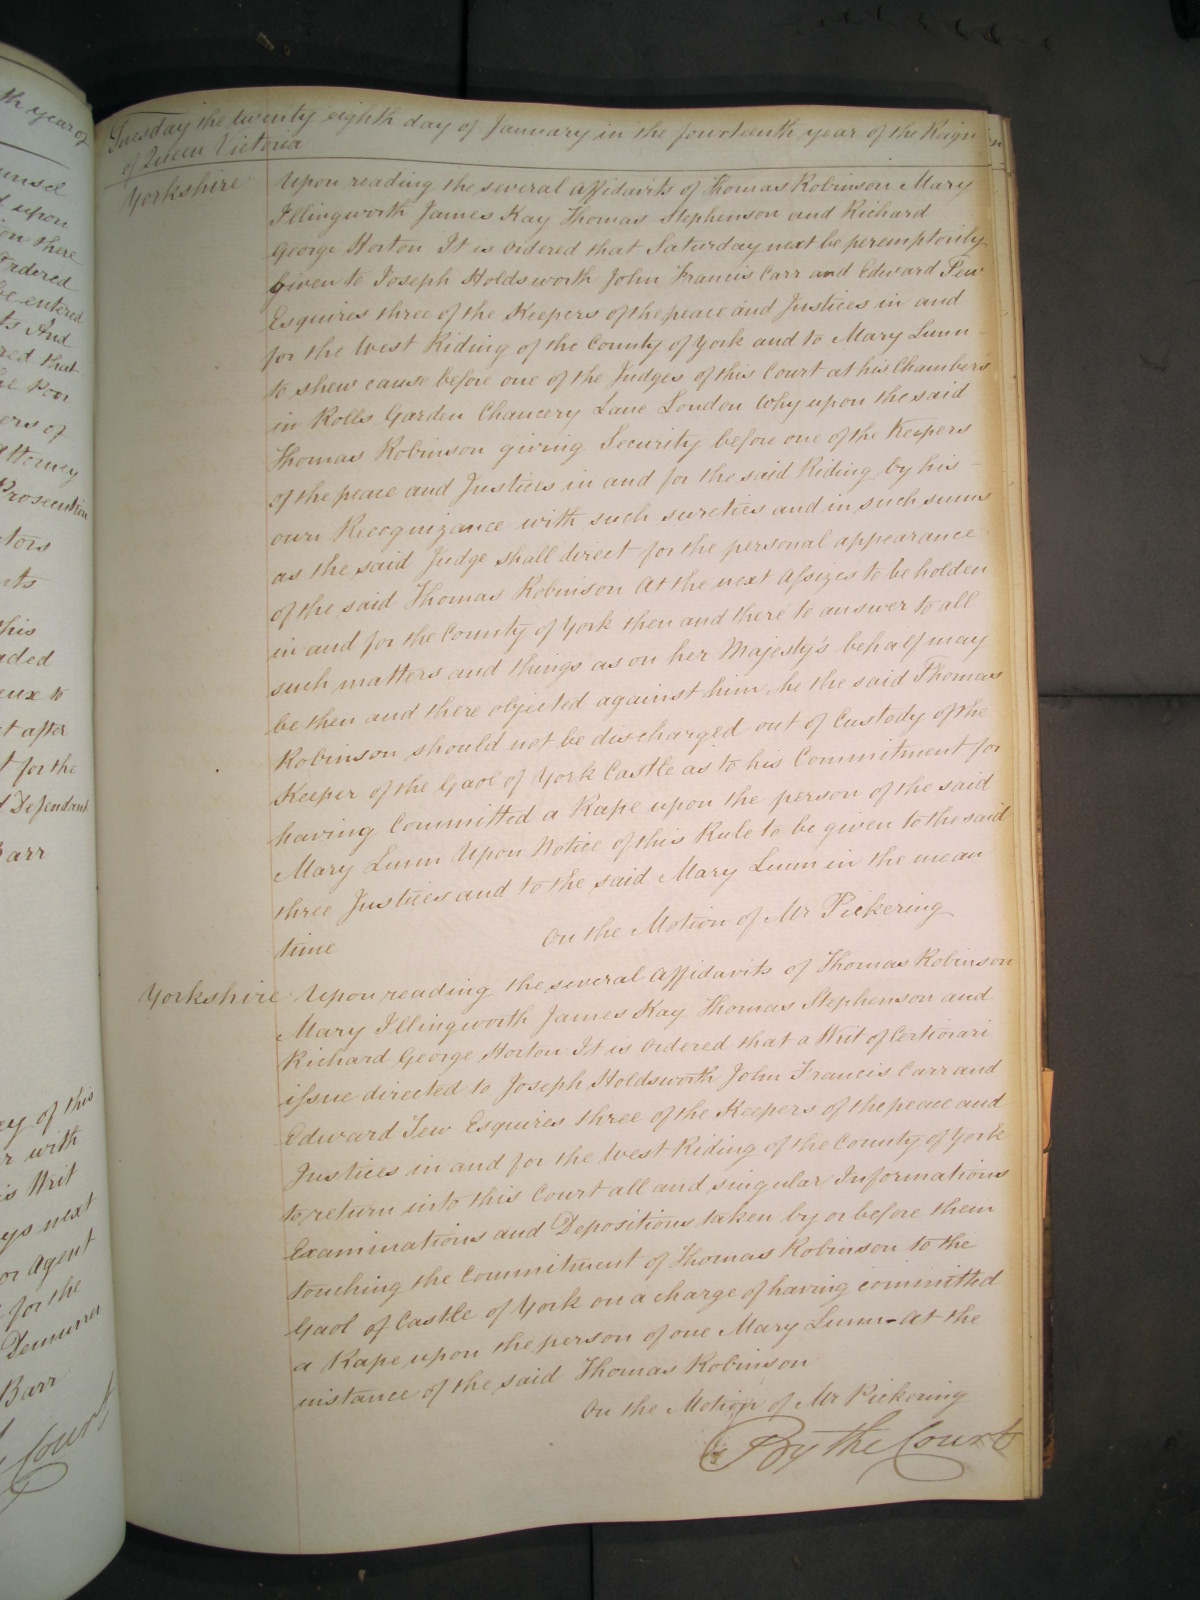 th year of
unsel
d upon
on there
Ordered
be entered
ts And
red that
he Poor
ers of
Attorney
Prosecution
tors
nts
this
aded
eux to
t after
t for the
d Defendant
Barr
ey of this
r with
is Writ
ys next
or Agent
for the
Demurrer
Barr
Court
Tuesday the twenty eighth day of January in the fourteenth year of the Reign
of Queen Victoria
Yorkshire Upon reading the several Affidavits of Thomas Robinson Mary
Illingworth James Kay Thomas Stephenson and Richard
George Horton It is Ordered that Saturday next be peremptorily
Given to Joseph Holdsworth John Francis Carr and Edward Tew
Esquires three of the Keepers of the peace and Justices in and
for the West Riding of the County of York and to Mary Lumm
to shew cause before one of the Judges of this Court at his Chambers
in Rolls Garden Chancery Lane London Why upon the said
Thomas Robinson giving Security before one of the Keepers
of the peace and Justices in and for the said Riding by his
own Recognizance with such sureties and in such sums
as the said Judge shall direct for the personal appearance
of the said Thomas Robinson At the next Assizes to be holden
in and for the County of York then and there to answer to all
such matters and things as on her Majesty's behalf may
be then and there objected against him he the said Thomas
Robinson should not be discharged out of Custody of the
Keeper of the Gaol of York Castle as to his Commitment for
having Committed a Rape upon the person of the said
Mary Lumm Upon Notice of this Rule to be given to the said
three Justices and to the said Mary Lumm in the mean
time On the Motion of Mr Pickering
Yorkshire Upon reading the several Affidavits of Thomas Robinson
Mary Illingworth James Kay Thomas Stephenson and
Richard George Horton It is Ordered that a Writ of Certiorari
issue directed to Joseph Holdsworth John Francis Carr and
Edward Tew Esquires three of the Keepers of the peace and
Justices in and for the West Riding of the County of York
to return into this Court all and singular Informations
Examinations and Depositions taken by or before them
touching the Commitment of Thomas Robinson to the
Gaol of Castle of York on a charge of having committed
a Rape upon the person of one Mary Lumm At the
instance of the said Thomas Robinson
On the Motion of Mr Pickering
By the Court